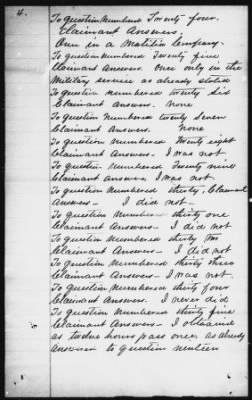 4.
To question Numbered Twenty four.
Claimant Answers.
One in a Malitia Company.
To question Numbered Twenty five
Claimant Answers One only in the
Military service as already stated
To question numbered twenty six
Claimant Answers. none
To question Numbered twenty seven
Claimant Answers. None
To question numbered Twenty eight
Claimant Answers - I was not
To question Numbered Twenty nine
Claimant Answers, I was not
To question Numbered thirty, Claimant
Answers - I did not -
To question Numbered thirty one
Claimant Answers - I did not
To question Numbered thirty two
Claimant Answers - I did not
To question Numbered thirty three
Claimant Answers - I was not
To question Numbered thirty four
Claimant Answers. I never did
To question Numbered thirty five
Claimant Answers - I obtained
as twelve hours pass once, as already
Answered to question